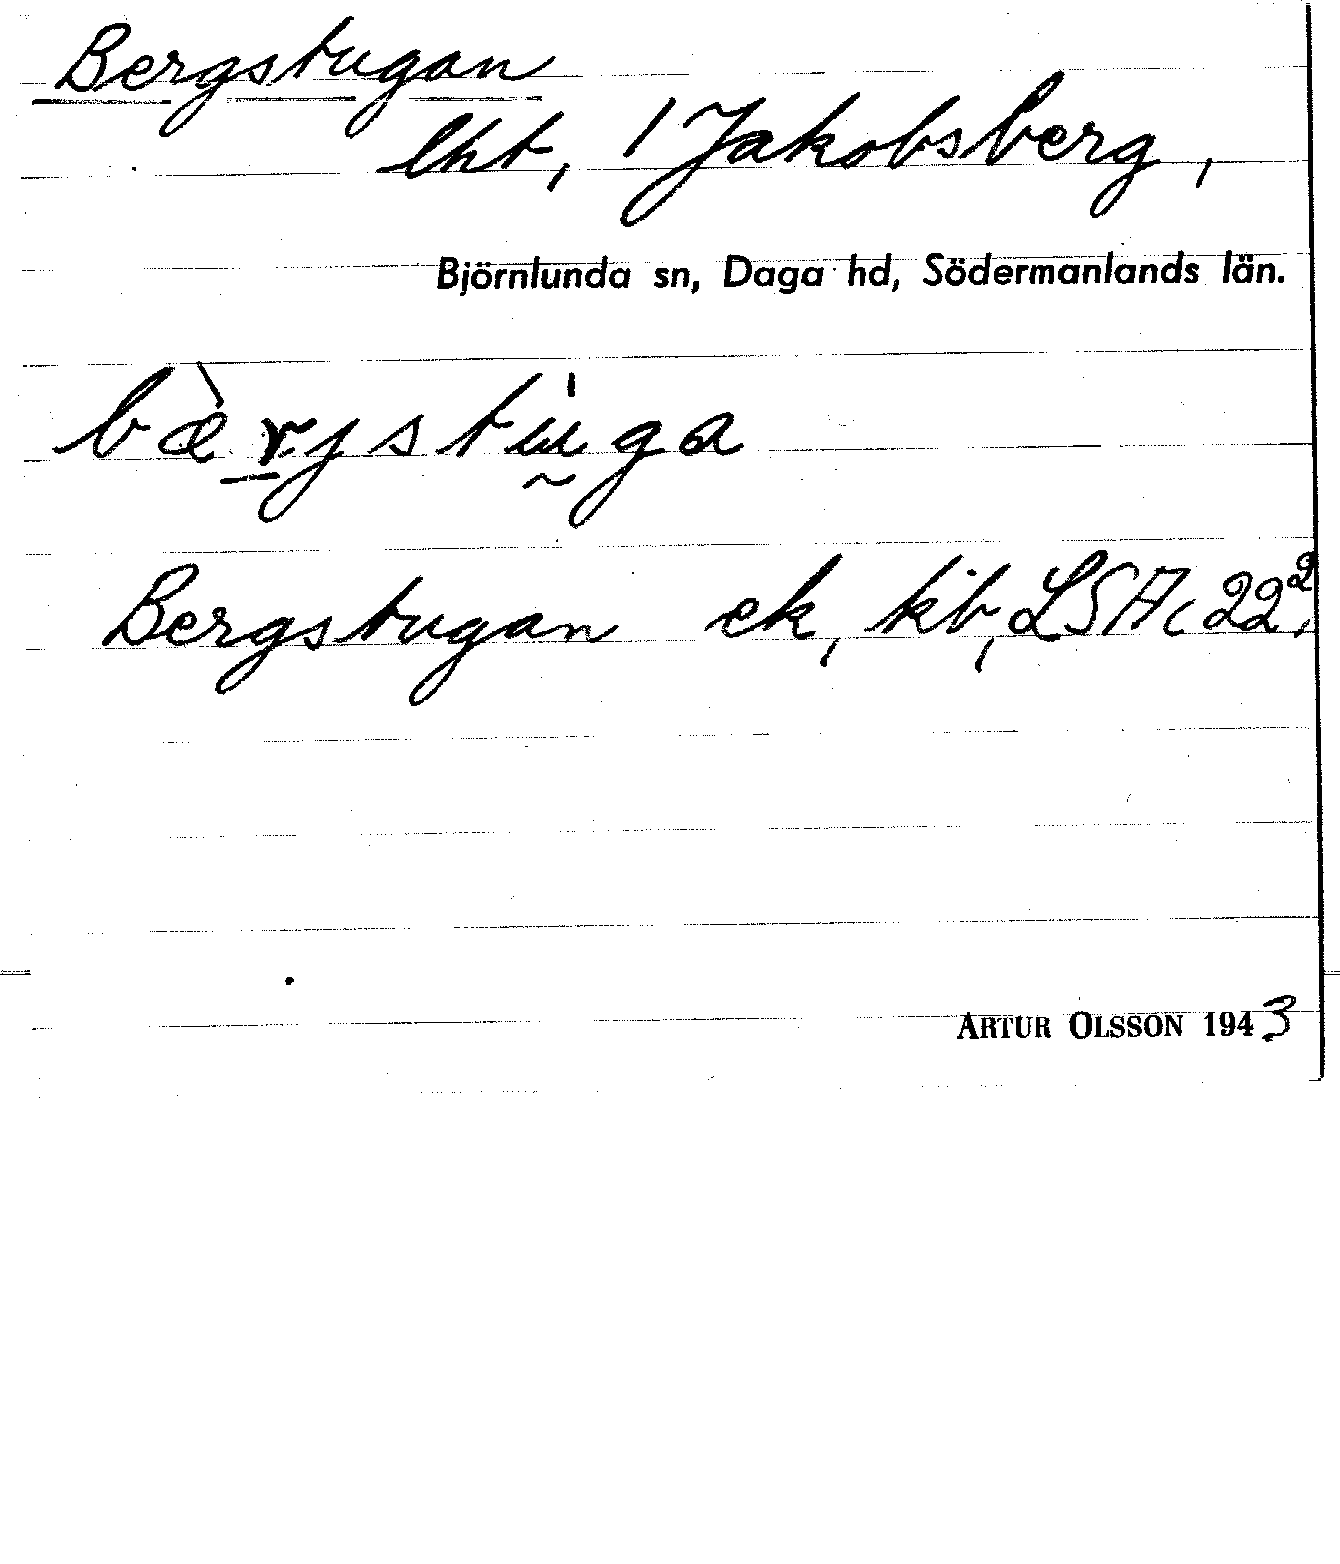 Bergstugan
lht, / Jakobsberg,
Björnlunda sn, Daga hd, Södermanlands län.
bæ̀rjstu̇ga
Bergstugan ek, kb, LSA c 22²,
ARTUR OLSSON 1943